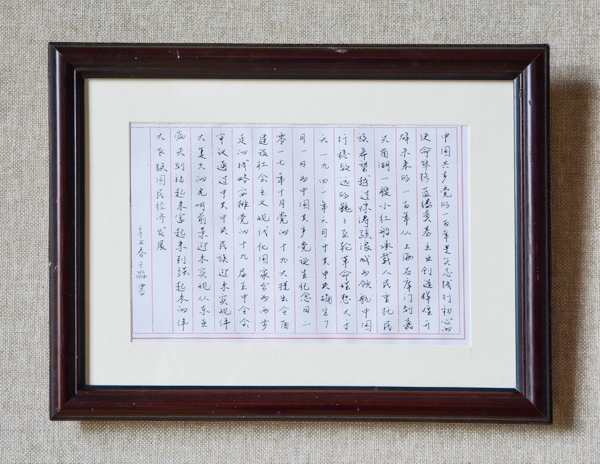 中国共产党的一百年是矢志践行初心的
使命筚路蓝缕奠基立业创造辉煌开
辟未来的一百年从上海石库门到嘉
兴南湖一艘小红船承载人民重托民
族希望越过惊涛骇浪成为领航中国
行稳致远的巍巍巨轮革命理想大于
天一九四一年六月中共中央确定了
月一日为中国共产党诞生纪念日二
零一七年十月党的十九大提出全面
建设社会主义现代化国家分为两步
走的战略安排党的十九届五中全会
审议通过中共中央民族迎来实现伟
大复兴的光明前景迎来实现从东亚
病夫到站起来富起来到强起来的伟
大飞跃国民经济发展
辛丑春子 书